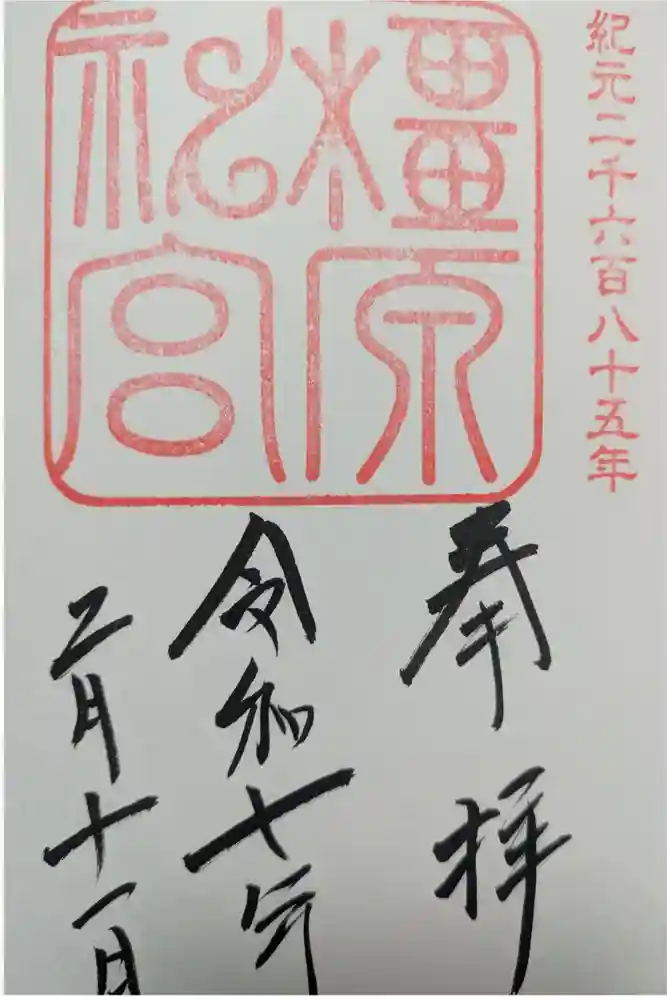 紀元二千六百八十五年
橿原神宮
奉拝
令和七年
二月十一日